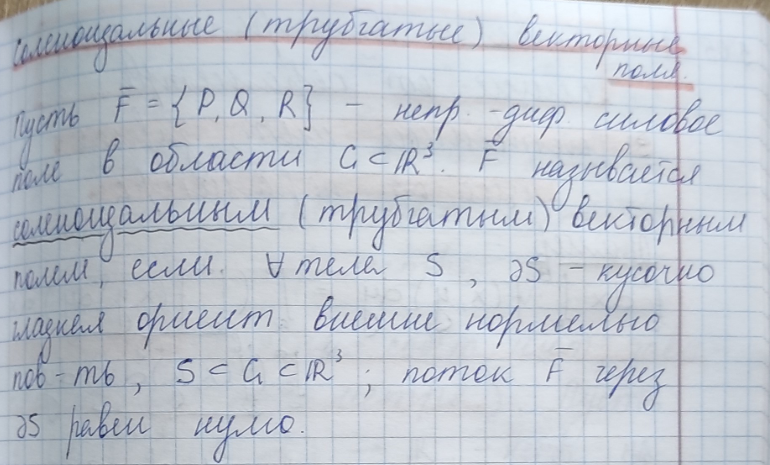 соленоидальные (трубчатые) векторные
поля.
Пусть F̄ = {P, Q, R} – непр.-диф силовое
поле в области G ⊂ ℝ³. F̄ называется
соленоидальным (трубчатым) векторным
полем, если ∀ тела S, ∂S – кусочно
гладкая ориент. внешне нормалью
пов-ть, S ⊂ G ⊂ ℝ³; поток F̄ через
∂S равен нулю.